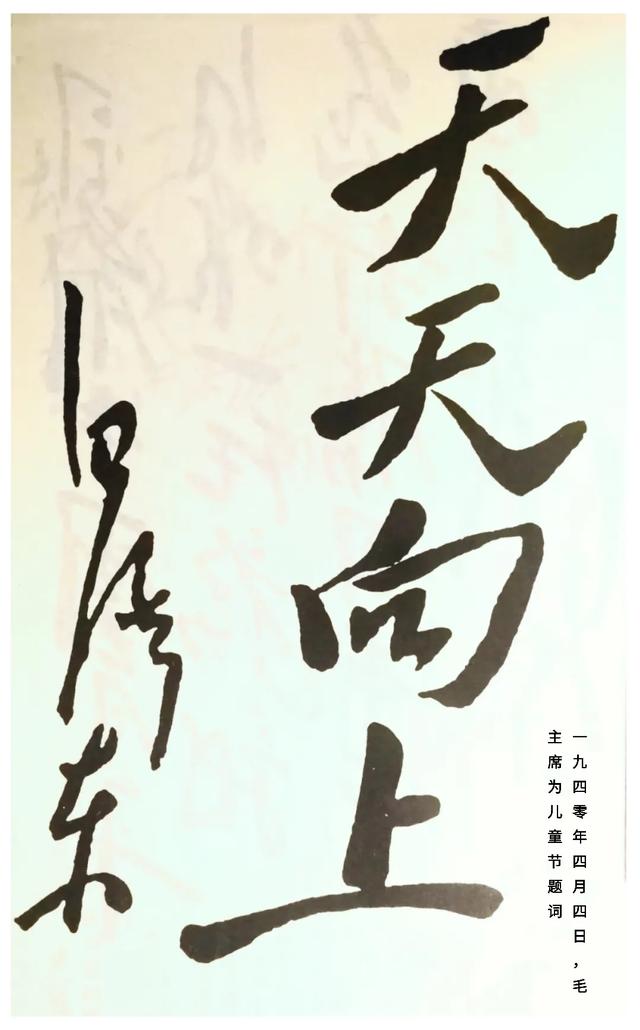 天天向上
一九四零年四月四日，毛
主席为儿童节题词
毛泽东